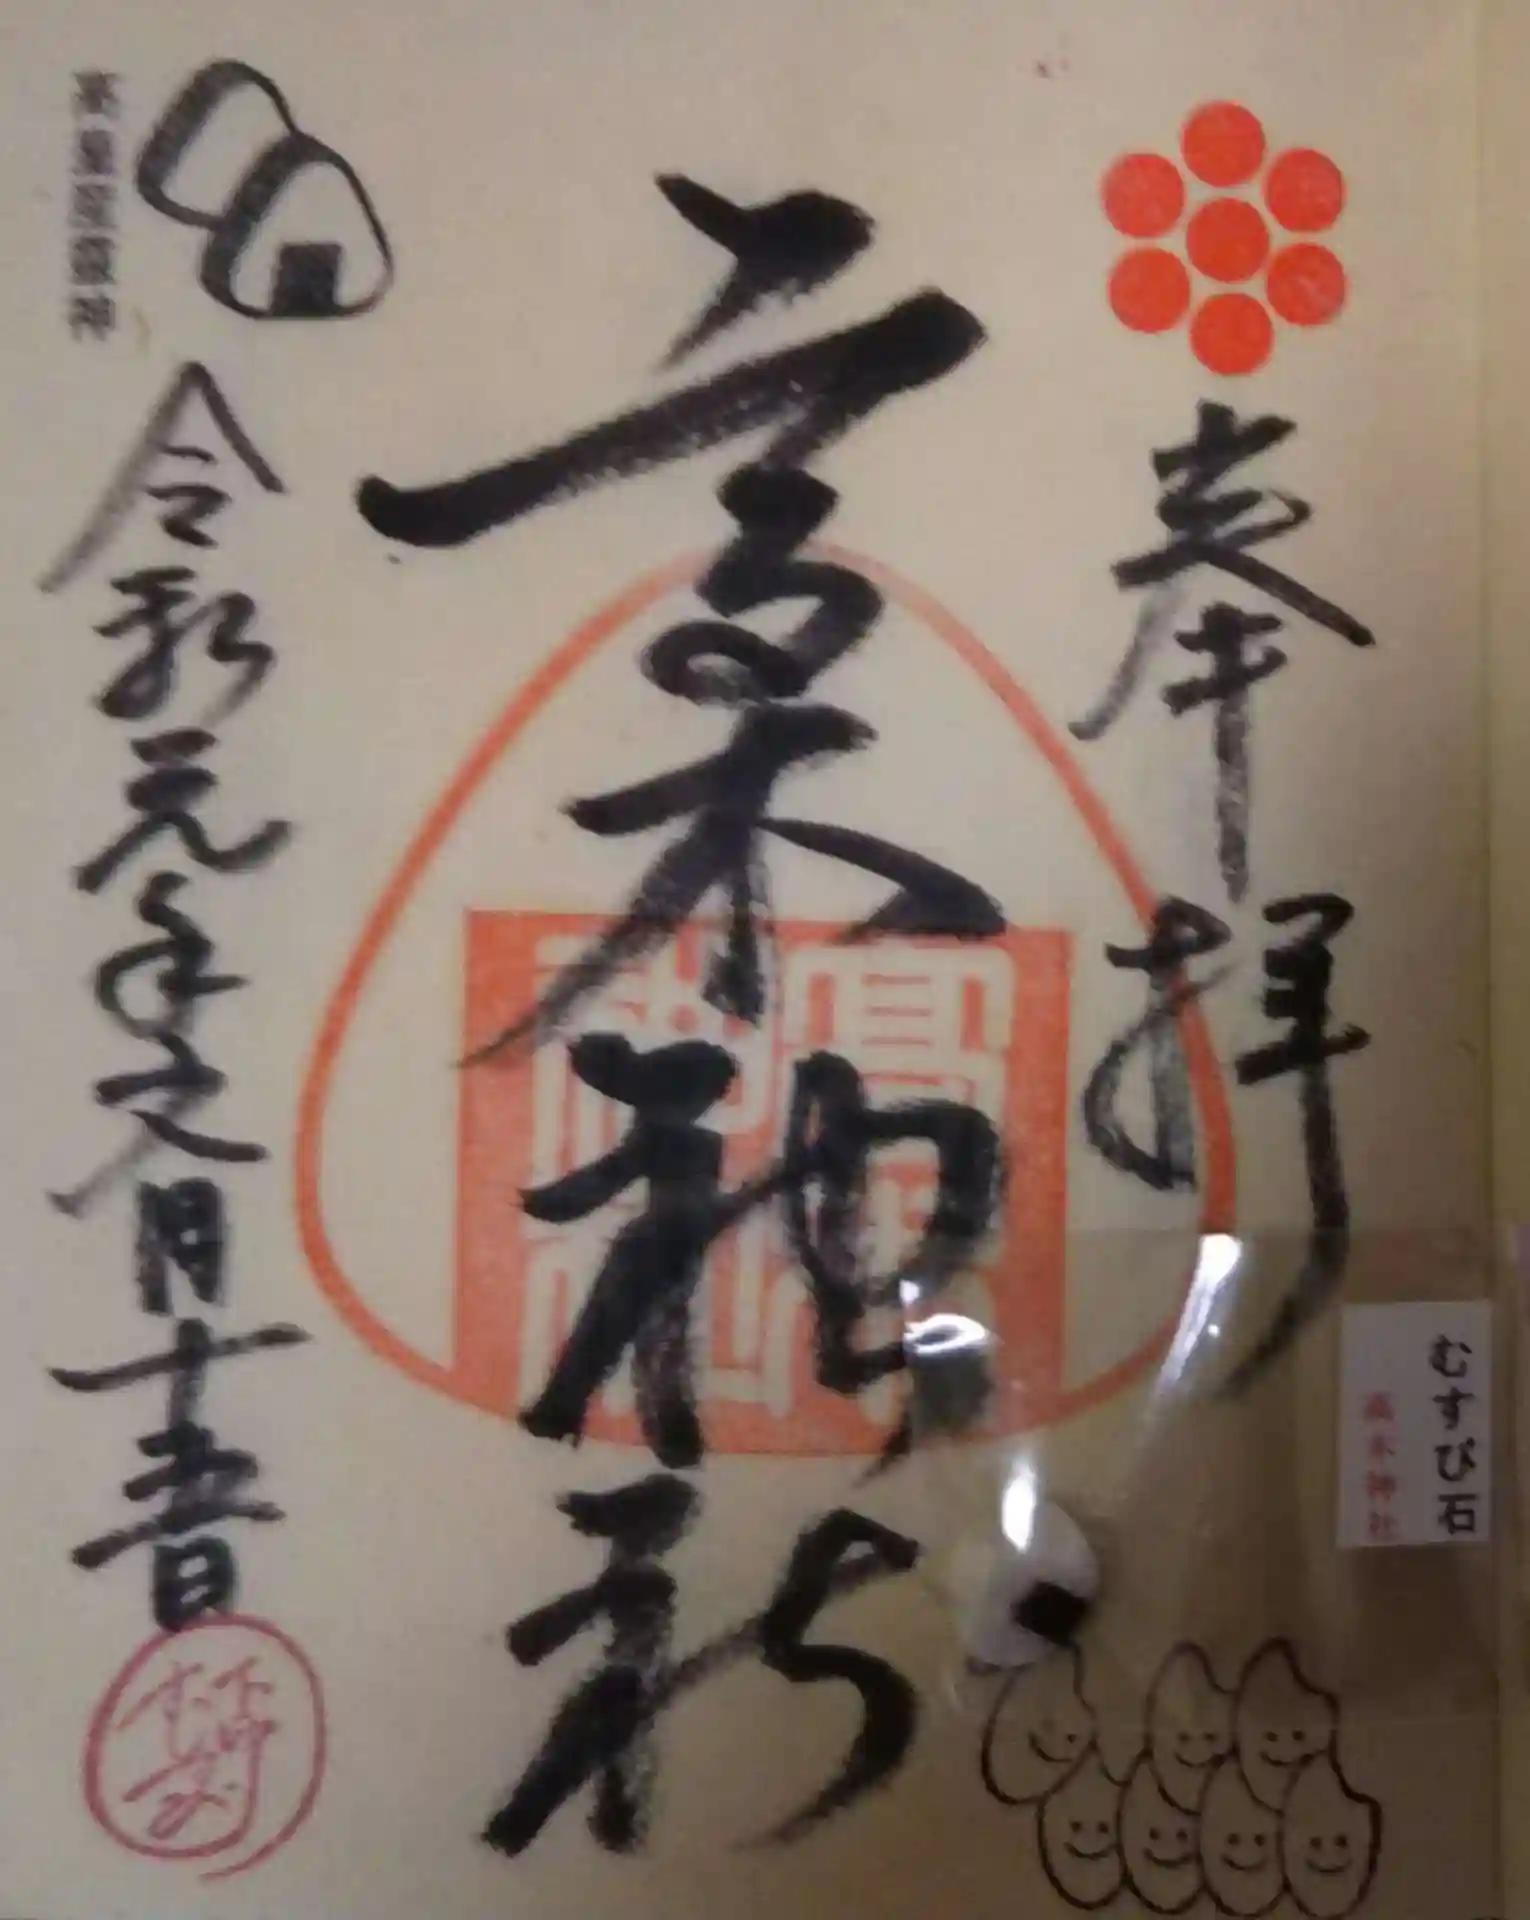 奉拝
高木神社
令和元年文月十五日
むすび石
高木神社